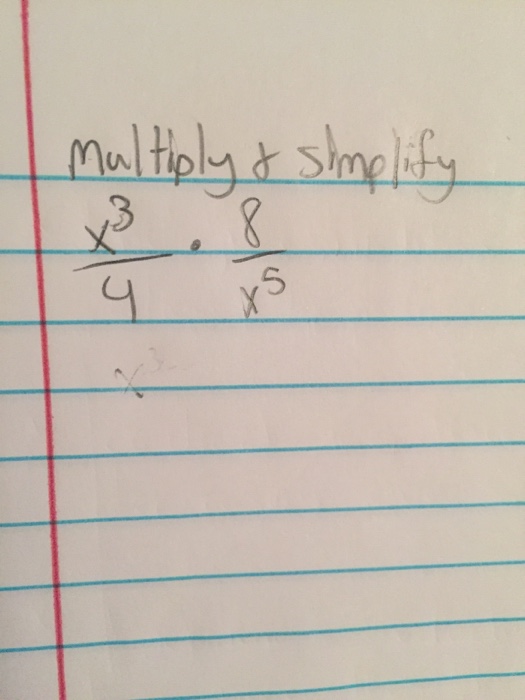 Multiply & simplify
x³/4 · 8/x⁵
x³